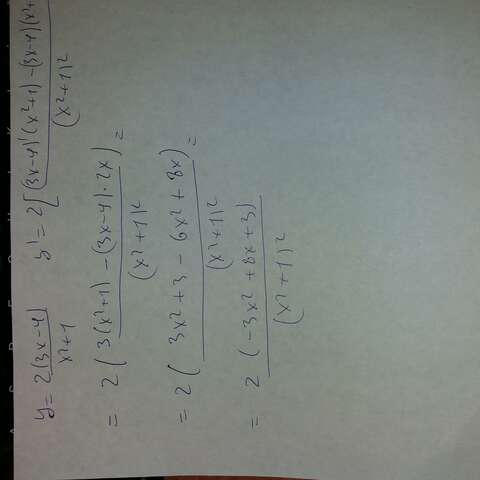 y = 2(3x-4)/x²+1 y' = 2[(3x-4)'(x²+1) - (3x-4)(x²+/(x²+1)²
= 2(3(x²+1) - (3x-4)·2x)/(x²+1)² =
= 2(3x²+3 - 6x²+8x)/(x²+1)² =
= 2(-3x²+8x+3)/(x²+1)²